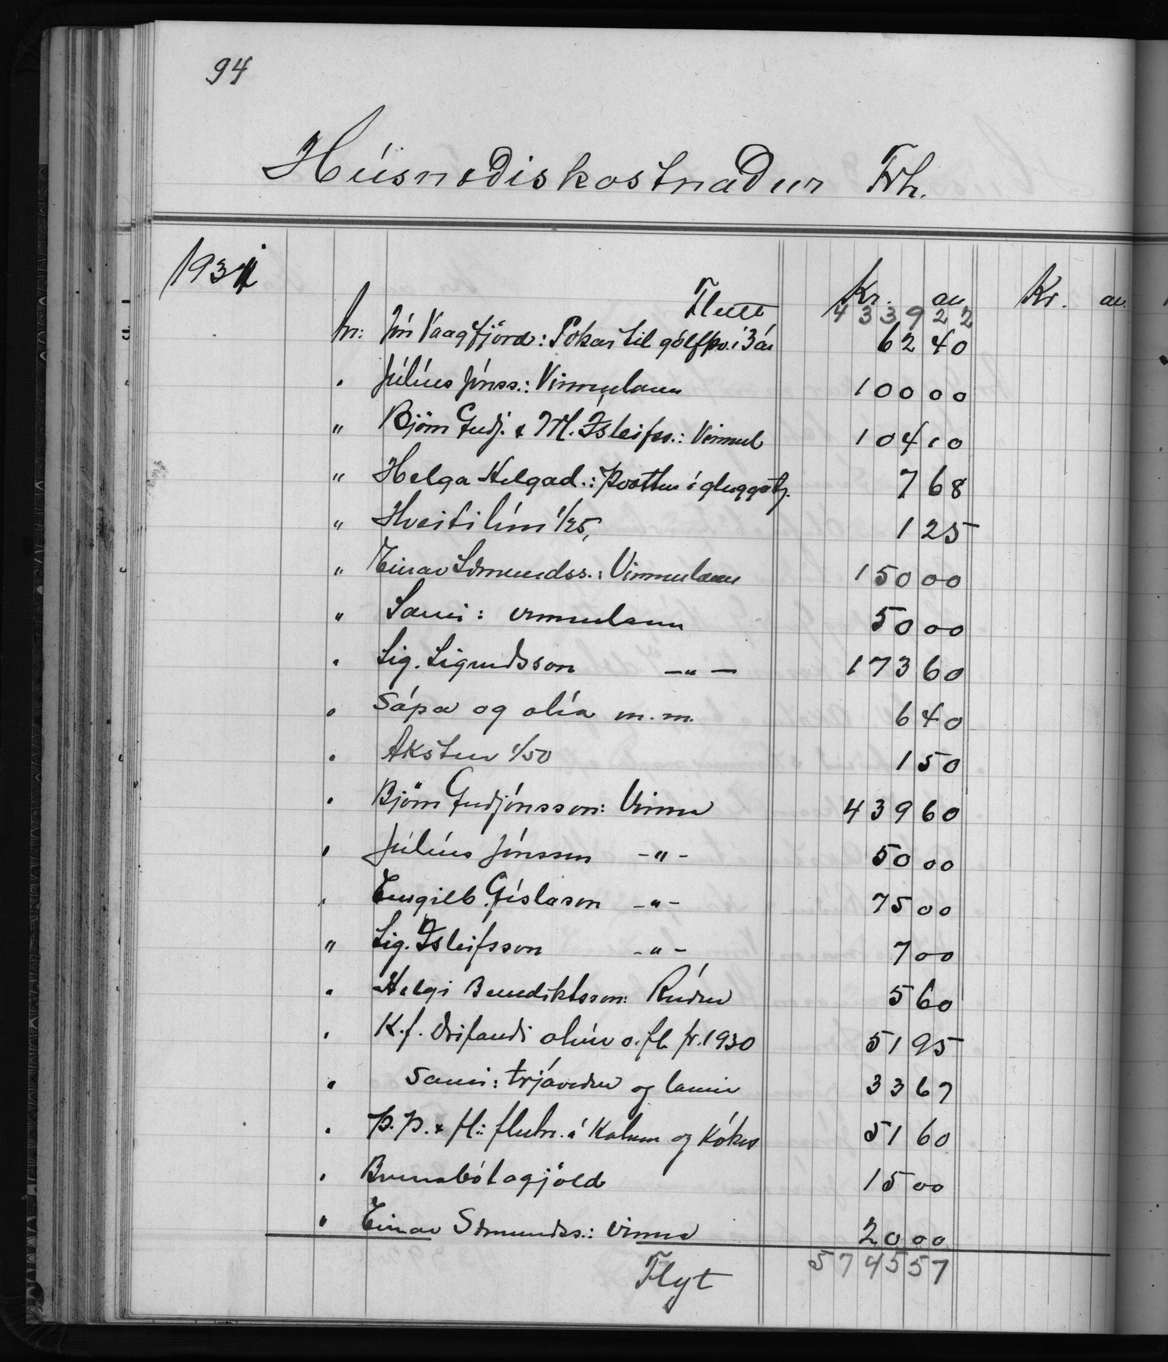 94
Húsnæðiskostnaður Frh.
1931
Kr. au Kr. au.
Flutt 4339 22
Jón Vaagfjörð: Pokar til gólfþv. í 3 ár 62 40
" Júlíus Jónss.: Vinnulaun 100 00
" Björn Guðj. & M. Ísleifss.: Vinnul 104 10
" Helga Helgad.: Þvottur í gluggatj. 7 68
" Hveitilím 1/25, 1 25
" Einar Sæmundss.: Vinnulaun 150 00
" Sami: vinnulaun 50 00
" Sig. Sigurðsson —"— 173 60
" Sápa og olía m.m. 6 40
" Akstur 1/50 1 50
" Björn Guðjónsson: Vinna 439 60
" Júlíus Jónsson -"- 50 00
" Engilb. Gíslason -"- 75 00
" Sig. Ísleifsson -"- 7 00
" Helgi Benediktsson: Rúður 5 60
" K.f. Drífandi olíur o. fl. fr. 1930 51 95
" Sami: trjáviður og lamir 33 67
" Þ.Þ. & fl: flutn. á Kolum og Kóks 51 60
" Brunabótagjöld 15 00
" Einar Sæmundss.: vinna 20 00
Flyt 5745 57